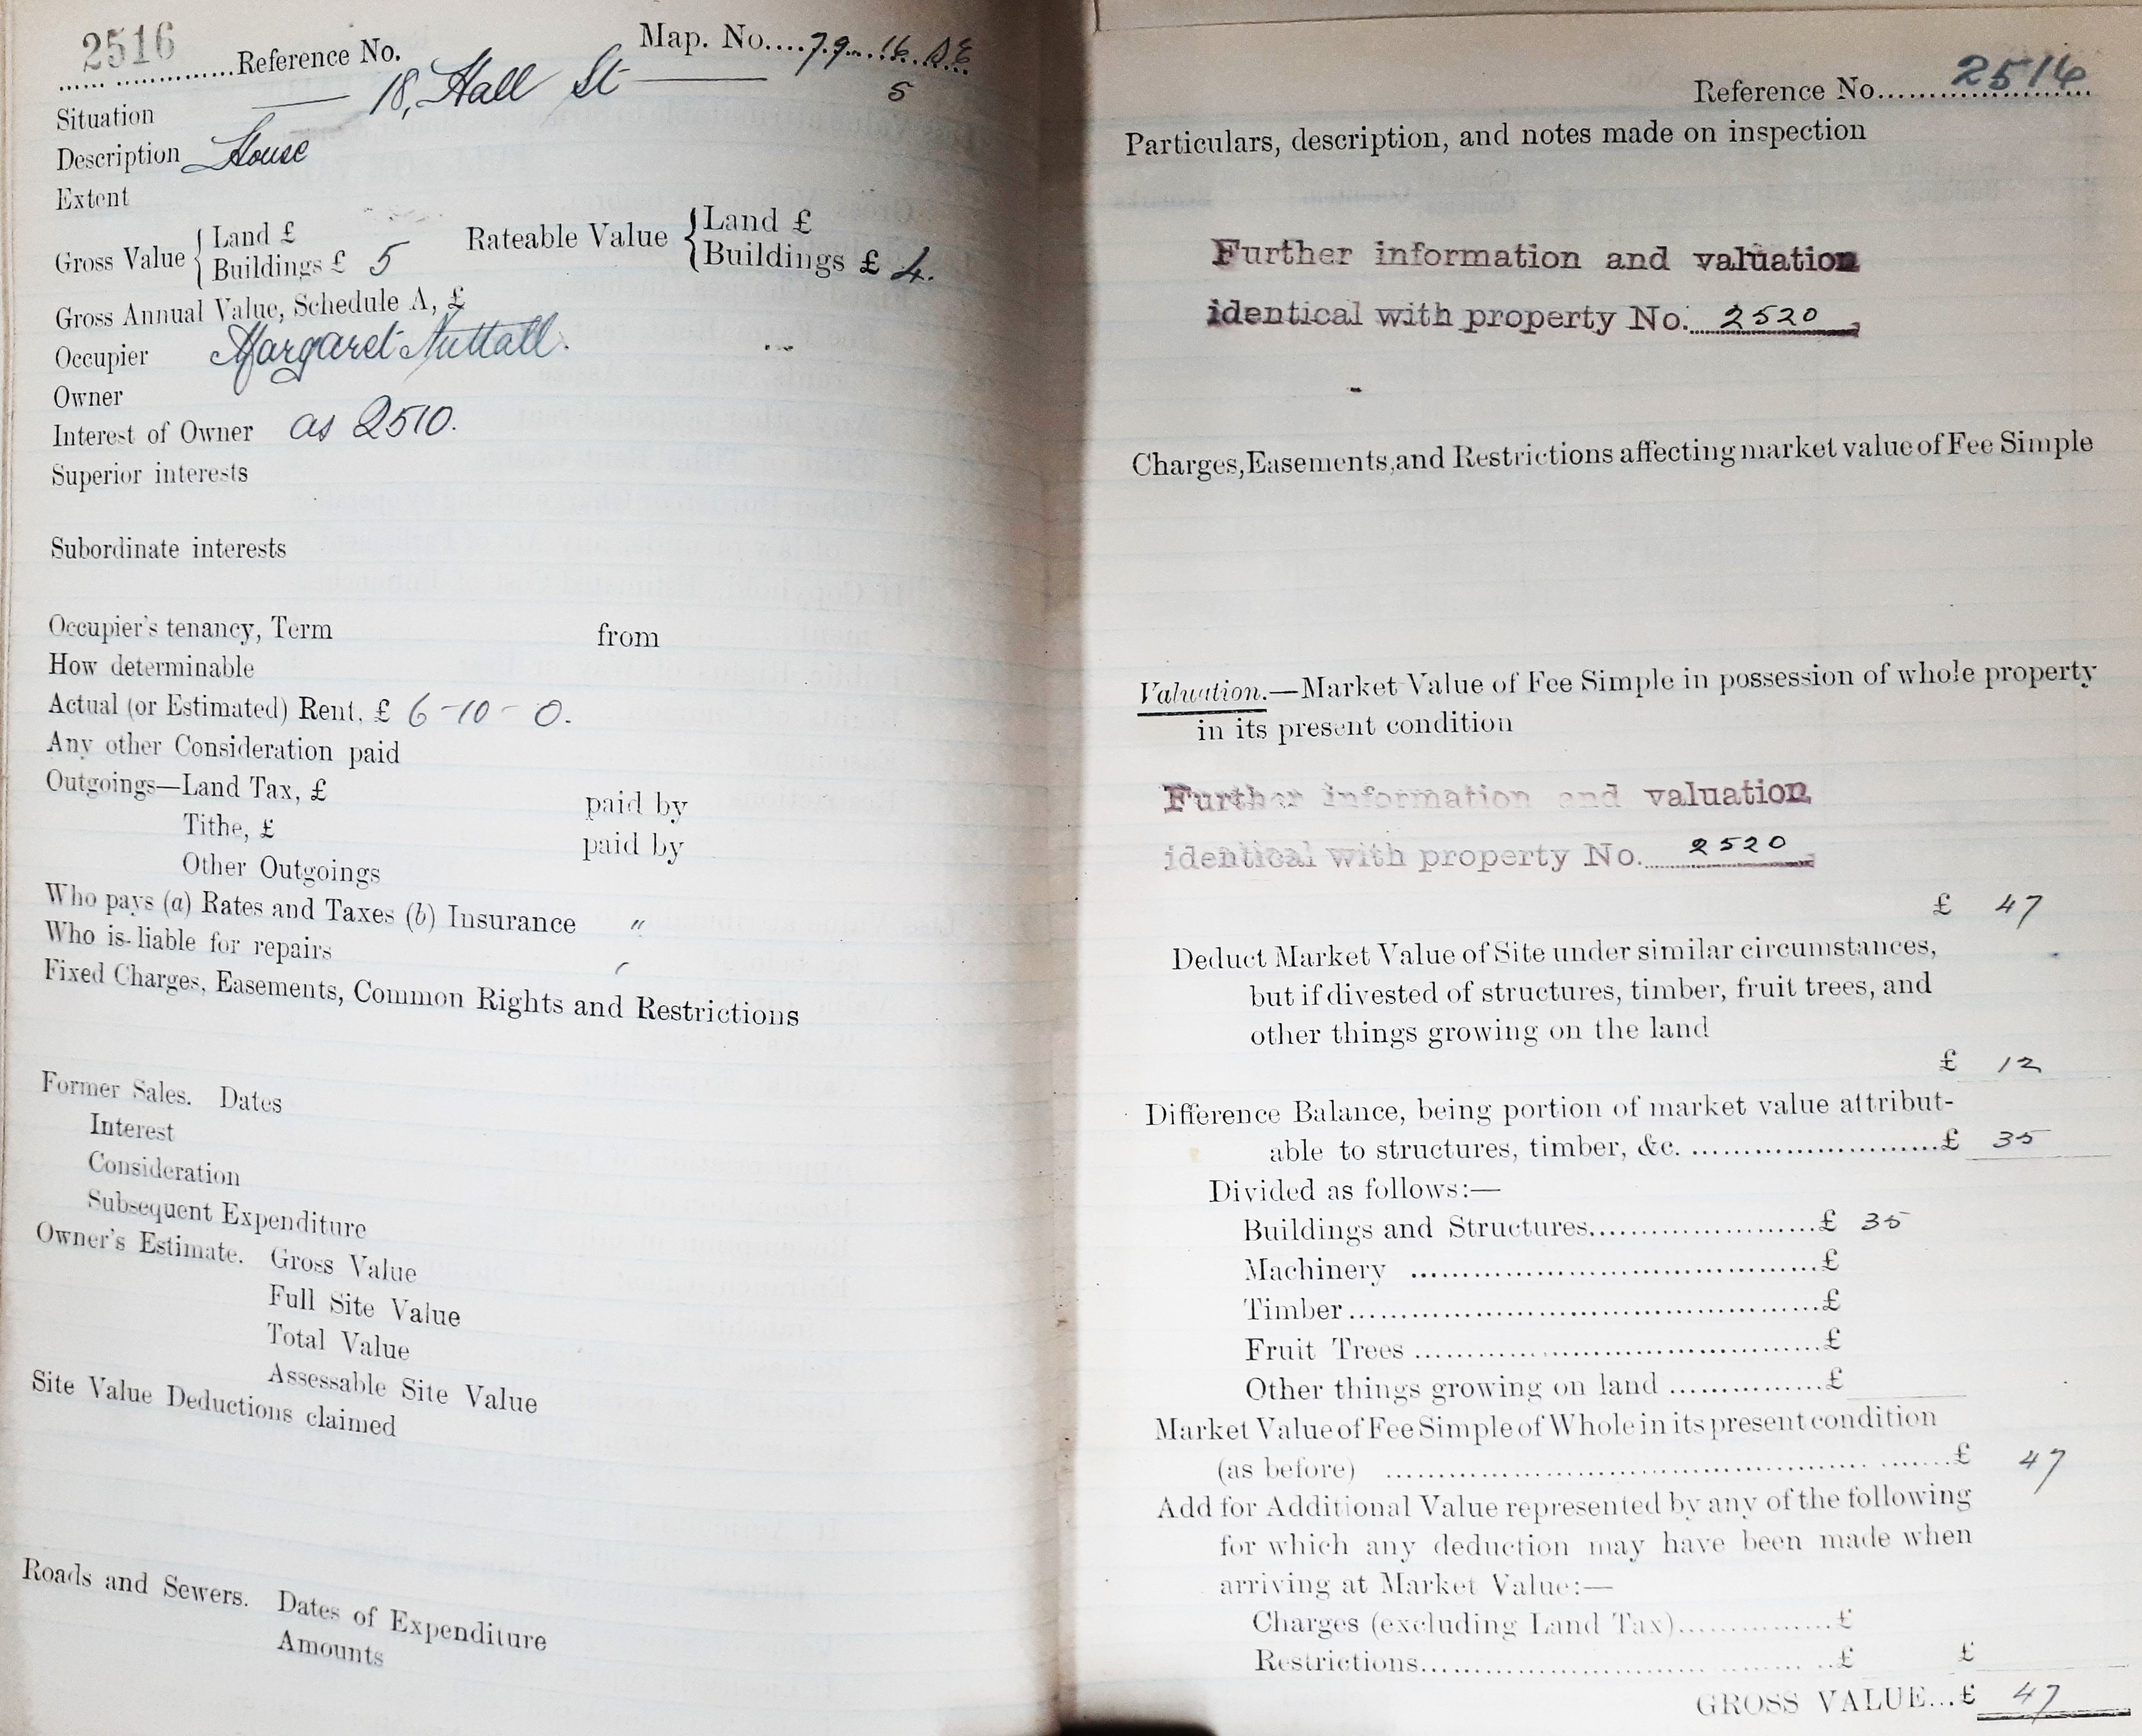 2516 Reference No. Map. No. 79.16.DE
5
Situation 18, Hall St
Description House
Extent
Gross Value { Land £
Buildings £ 5
Rateable Value { Land £
Buildings £ 4.
Gross Annual Value, Schedule A, £
Occupier Margaret Nuttall.
Owner
Interest of Owner as 2510.
Superior interests
Subordinate interests
Occupier's tenancy, Term from
How determinable
Actual (or Estimated) Rent, £ 6-10-0.
Any other Consideration paid
Outgoings—Land Tax, £ paid by
Tithe, £ paid by
Other Outgoings
Who pays (a) Rates and Taxes (b) Insurance "
Who is liable for repairs
Fixed Charges, Easements, Common Rights and Restrictions
Former Sales. Dates
Interest
Consideration
Subsequent Expenditure
Owner's Estimate. Gross Value
Full Site Value
Total Value
Assessable Site Value
Site Value Deductions claimed
Roads and Sewers. Dates of Expenditure
Amounts
Reference No. 2516
Particulars, description, and notes made on inspection
Further information and valuation
identical with property No. 2520
Charges, Easements, and Restrictions affecting market value of Fee Simple
Valuation.—Market Value of Fee Simple in possession of whole property
in its present condition
Further information and valuation
identical with property No. 2520
£ 47
Deduct Market Value of Site under similar circumstances,
but if divested of structures, timber, fruit trees, and
other things growing on the land
£ 12
Difference Balance, being portion of market value attribut-
able to structures, timber, &c. £ 35
Divided as follows:—
Buildings and Structures £ 35
Machinery £
Timber £
Fruit Trees £
Other things growing on land £
Market Value of Fee Simple of Whole in its present condition
(as before) £ 47
Add for Additional Value represented by any of the following
for which any deduction may have been made when
arriving at Market Value:—
Charges (excluding Land Tax) £
Restrictions £ £
GROSS VALUE... £ 47